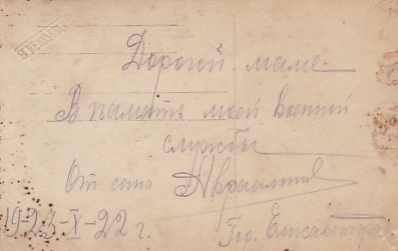 Дорогой маме
В память моей военной
службы
От сына Авраамия
19-23-X-22 г.
Гор. Елисаветград